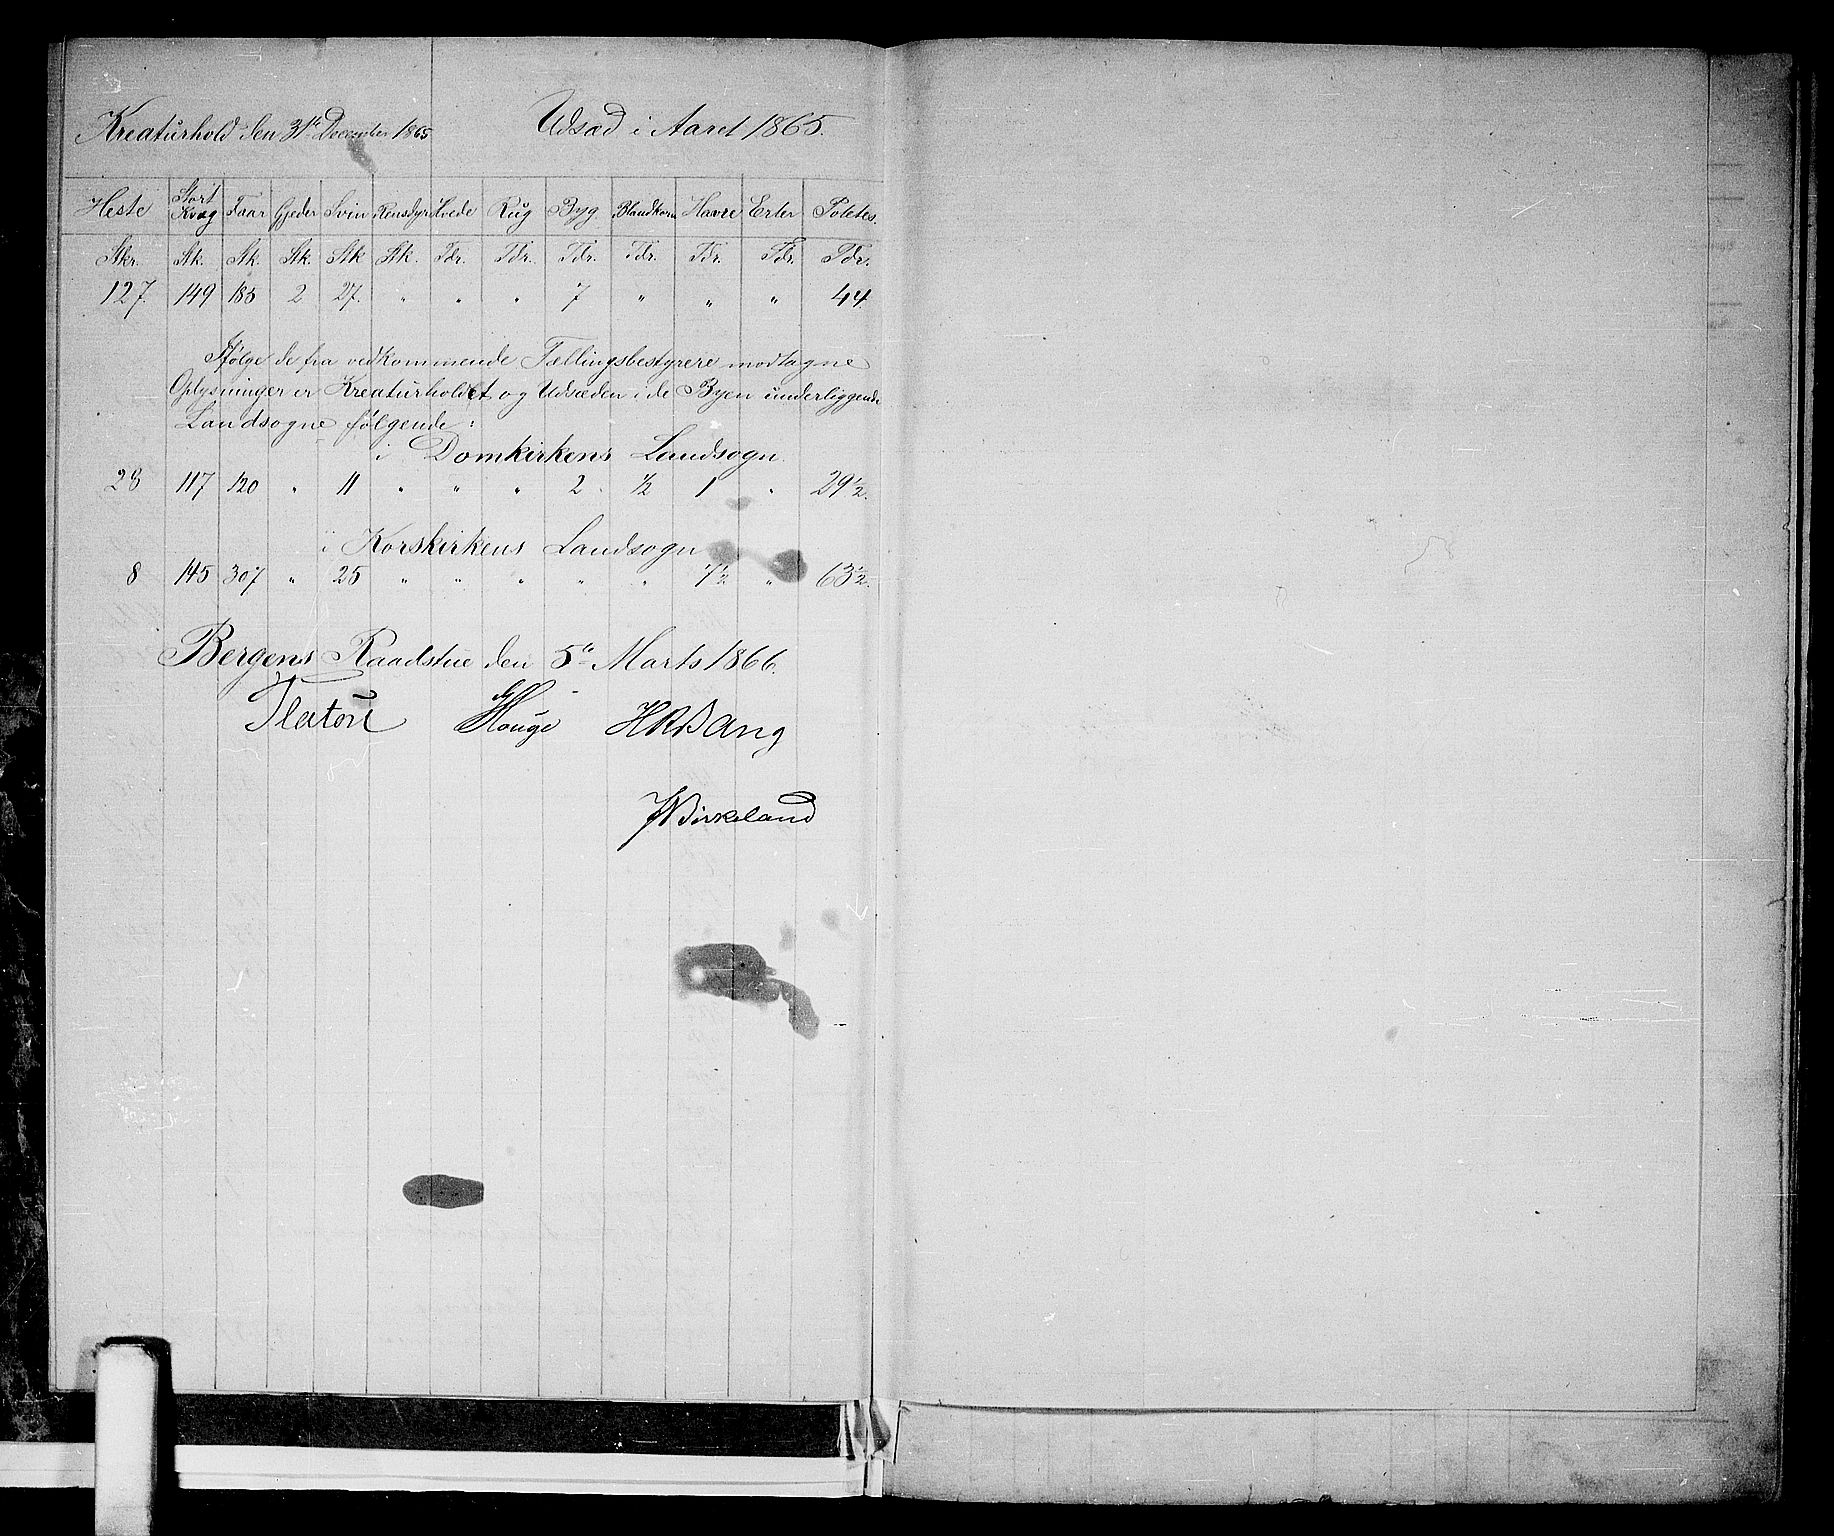 Kreaturhold den 31te December 1865 Udsæd i Aaret 1865.
Heste Stort Kvæg Faar Gjeder Svin Rensdyr Hvede Rug Byg Blandkorn Havre Erter Potetes.
Stkr. Stk. Stk. Stk. Stk Stk. Tdr. Tdr. Tdr. Tdr. Tdr. Tdr. Tdr.
127. 149 185 2 27. " " " 7 " " " 44
Ifølge de fra vedkommende Tællingsbestyrere modtagne
Oplysninger er Kreaturholdet og Udsæden i de Byen underliggende
Landsogne følgende:
i Domkirkens Landsogn
28 117 120 " 11 " " " 2 ½ 1 " 29½.
i Korskirkens Landsogn
8 145 307 " 25 " " " " " 7½ " 63½.
Bergens Raadstue den 5te Marts 1866.
Platou Houge HRBang
Birkeland